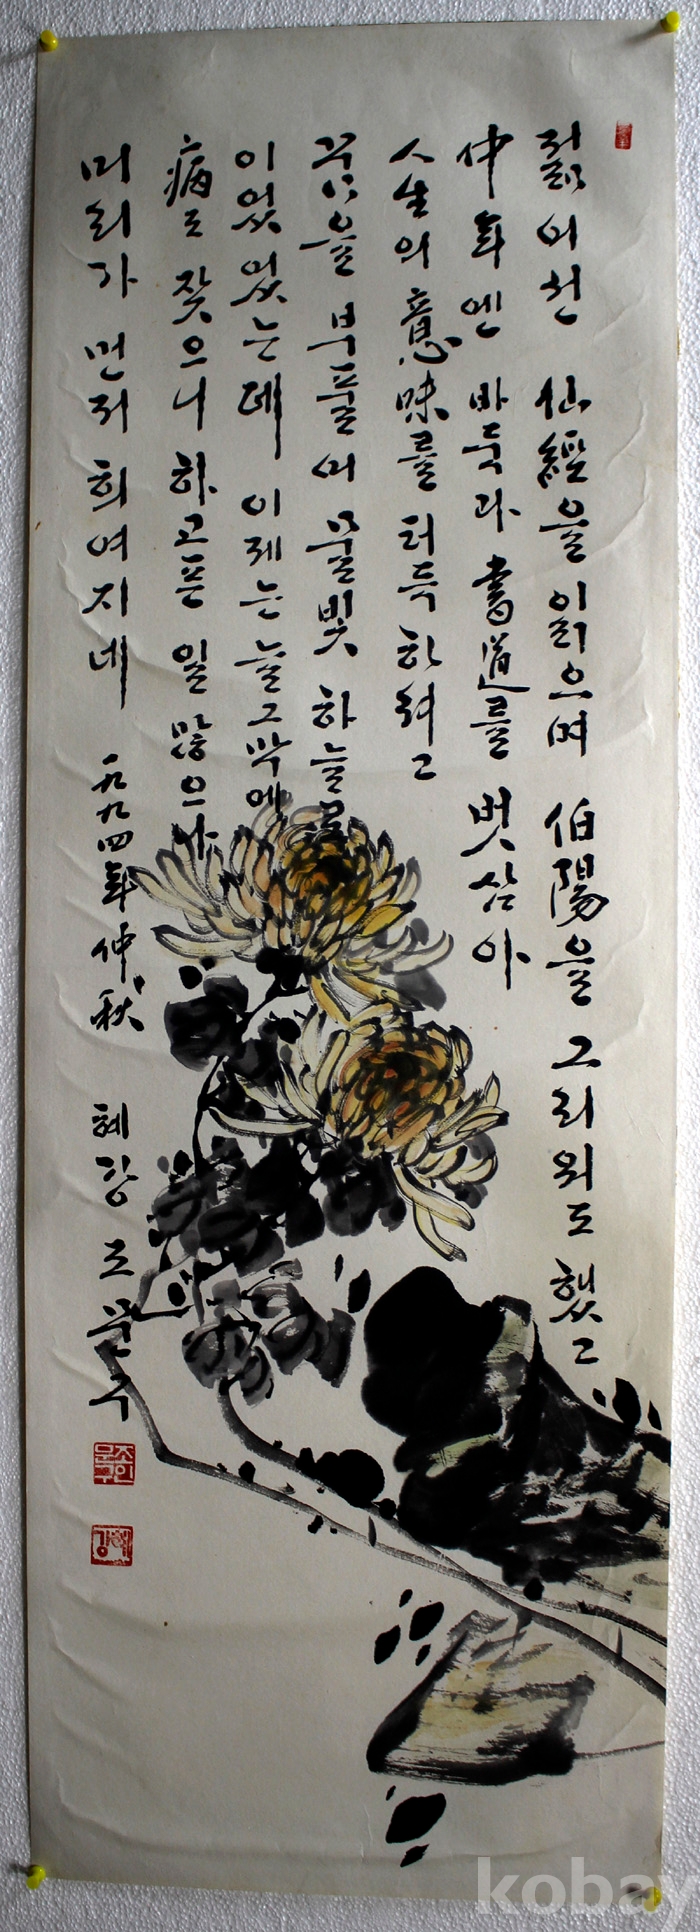 젊어선 仙經을 읽으며 伯陽을 그리워도 했고
中年엔 바둑과 書道를 벗삼아
人生의 意味를 터득하려고
꾸음을 부풀어 물빛 하늘로
이었었는데 이제는 늘그막에
病도 잦으니 하고픈 일 많으나
머리가 먼저 희여지네 一九九四年 仲秋 혜강 조문구
조인문구
혜강
kobay